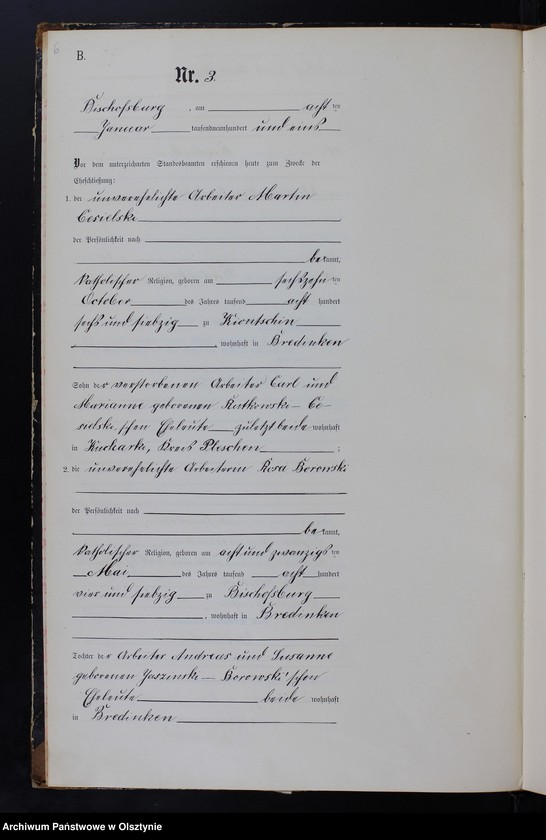 6
B.
Nr. 3.
Bischofsburg, am achtten
Januar tausendneunhundert und eins
Vor dem unterzeichneten Standesbeamten erschienen heute zum Zwecke der
Eheschließung:
1. der unverehelichte Arbeiter Martin
Cesielski
der Persönlichkeit nach
bekannt,
katholischer Religion, geboren am sechszehnten
October des Jahres tausend acht hundert
sechs und siebzig zu
, wohnhaft in Bredinken
Sohn der verstorbenen Arbeiter Carl und
Marianne geborenen Rutkowski - Ce-
sielski'schen Eheleute zuletzt beide wohnhaft
in Kucharki, Kreis Pleschen;
2. die unverehelichte Arbeiterin Rosa Borowski
der Persönlichkeit nach
bekannt,
katholischer Religion, geboren am acht und zwanzigsten
Mai des Jahres tausend acht hundert
vier und siebzig zu Bischofsburg
, wohnhaft in Bredinken
Tochter der Arbeiter Andreas und Susanne
geborenen Jaszinski - Borowski'schen
Eheleute beide wohnhaft
in Bredinken
Archiwum Państwowe w Olsztynie